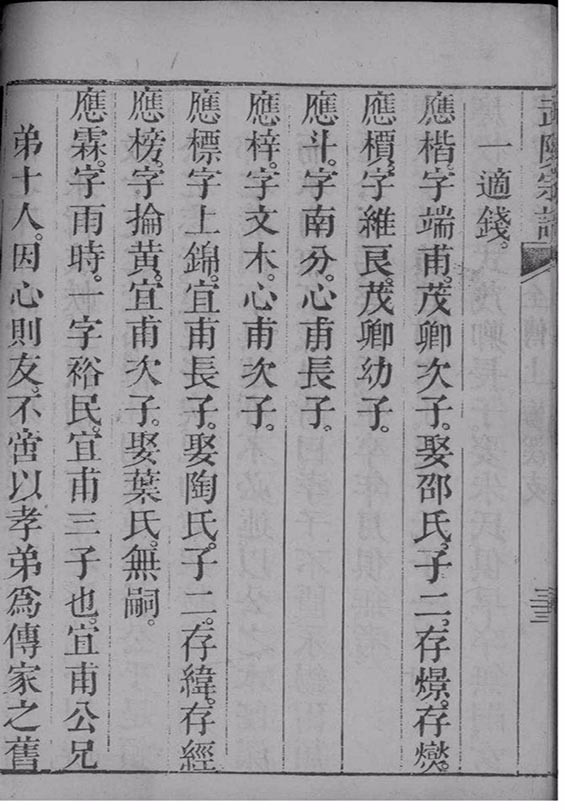 武陵宗譜
三三
一適錢。
應楷。字端甫。茂卿次子。娶邵氏。子二。存煚。存爕。
應檟。字維良。茂卿幼子。
應斗。字南分。心甫長子。
應梓。字文木。心甫次子。
應標字上錦。宜甫長子。娶陶氏。子二。存緯。存經
應榜。字掄黃。宜甫次子。娶葉氏。無嗣。
應霖。字雨時。一字裕民。宜甫三子也。宜甫公兄
弟十人。因心則友。不啻以孝弟爲傳家之舊